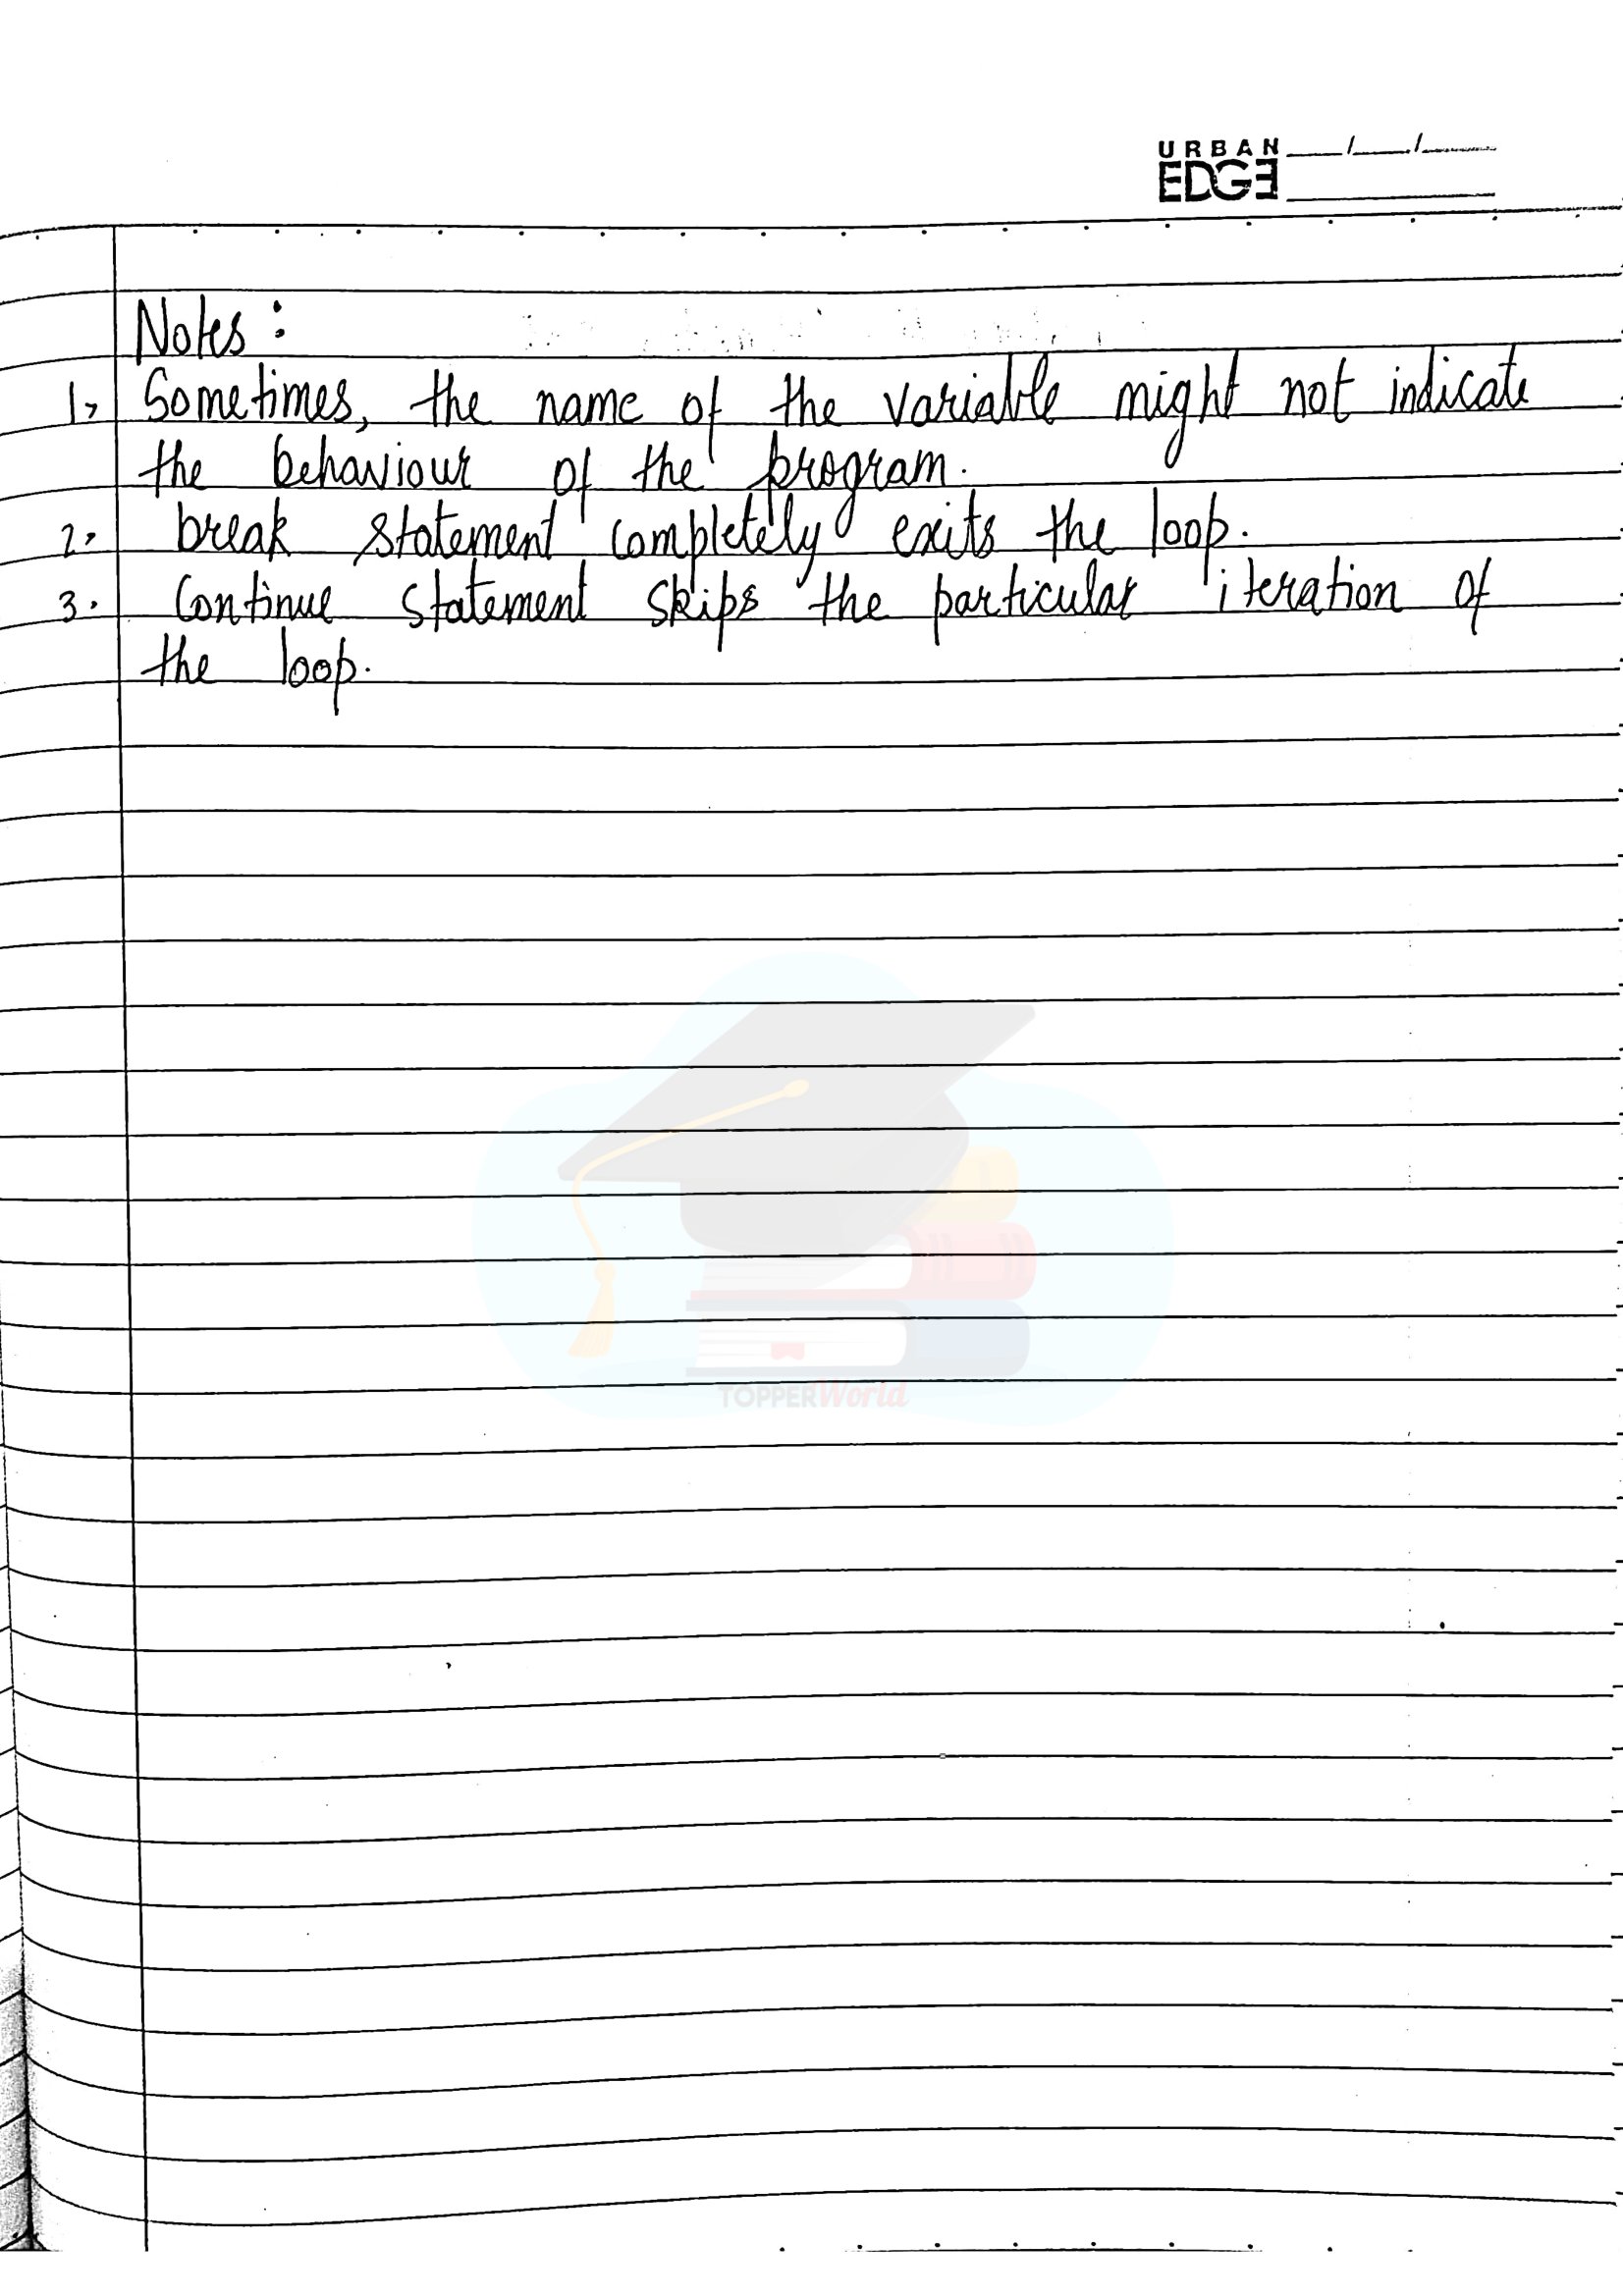 URBAN
EDGE
Notes :
1. Sometimes, the name of the variable might not indicate
the behaviour of the program.
2. break statement completely exits the loop.
3. Continue statement skips the particular iteration of
the loop.
TOPPERWorld